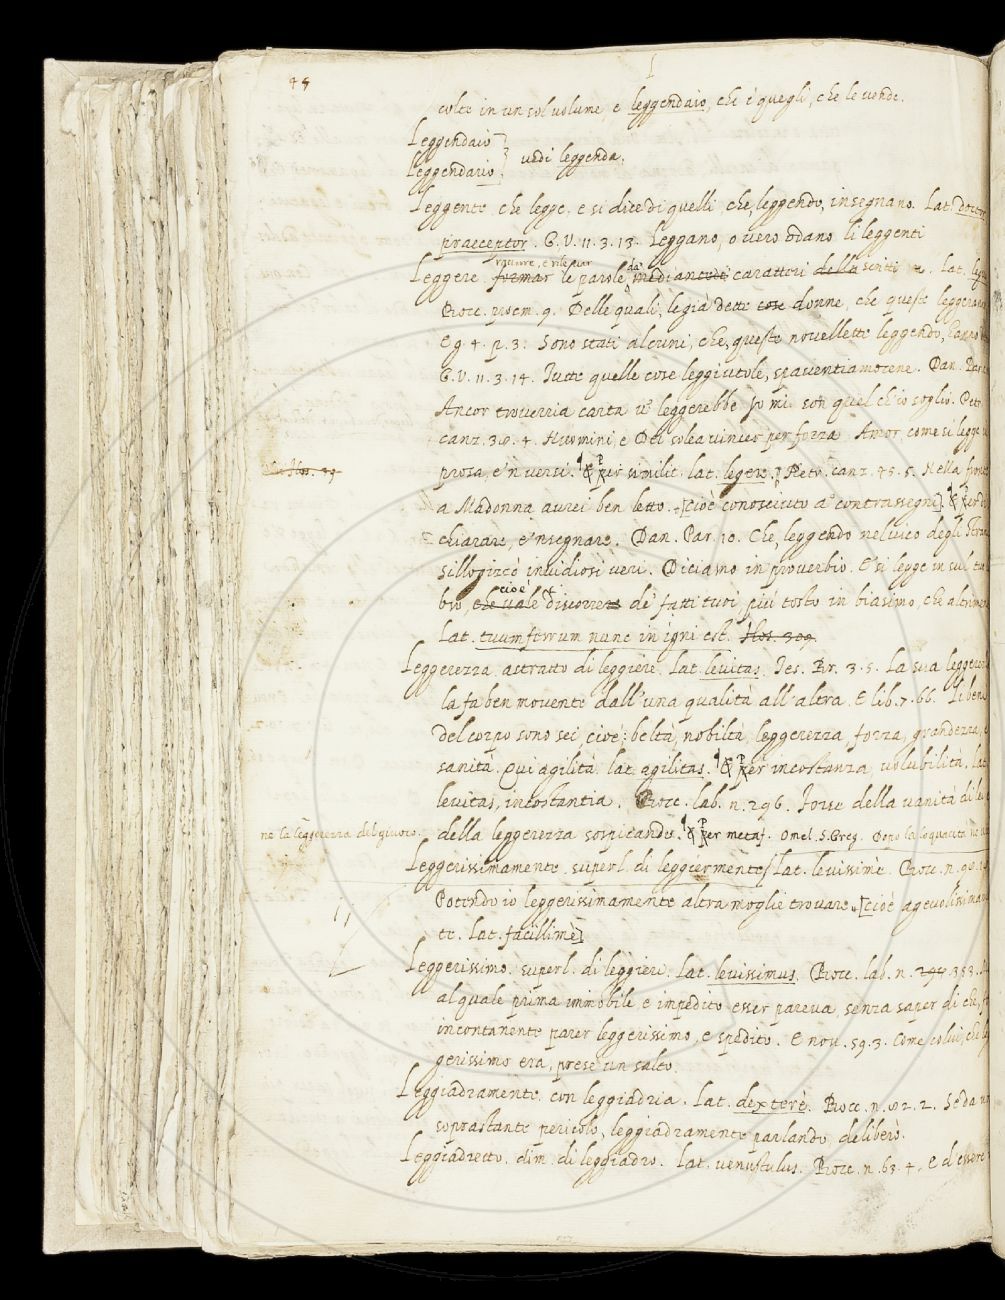 colte in un sol volume, e leggendaio, che è quegli, che le vende.
Leggendaio
Leggendario } vedi leggenda.
Leggente, che legge, e si dice di quelli, che, leggendo, insegnano. Lat.
praeceptor. G. V. 11. 3. 13. Leggano, o vero odano li leggenti
Leggere. le parole caratteri scritti. Lat.
Bocc. proem. 9. Delle quali, le già dette donne, che queste leggeranno
E g. 4. p. 3. Sono stati alcuni, che, queste novellette leggendo, hanno
G. V. 11. 3. 14. Tutte quelle cose leggiutole, spaventiamocene. Dan. Par.
Ancor troverria carta u' leggerebbe Io mi son quel ch'io soglio. Petr.
canz. 3. Huomini, e Dei solea vincer per forza Amor, come si legge in
prosa, e'n versi. ¶ & Per similit. lat. legere. Petr. canz. 45. 5. Nella fronte
a Madonna avrei ben letto. [cioè conosciuto a' contrassegni] ¶ & Per di
chiarare, e'nsegnare. Dan. Par. 10. Che, leggendo nel vico degli Strami
Sillogizzò invidiosi veri. Diciamo in proverbio. E' si legge in sul tuo li
bro, cioè discorrere de' fatti tuoi, più tosto in biasimo, che altrimenti
Lat. tuum ferrum nunc in igni est. Flos. 309.
Leggerezza. astratto di leggiere. Lat. levitas. Tes. Br. 3. 5. La sua leggerezza
la fa ben movente dall'una qualità all'altra. E lib. 7. 66. Li beni
del corpo sono sei cioè: beltà, nobiltà, leggerezza, forza, grandezza, e
sanità. Qui agilità. lat. agilitas. ¶ & Per incostanza, volubilità. Lat.
levitas, incostantia. Bocc. lab. n. 296. Forse della vanità di lei
della leggerezza sospicando. ¶ & Per metaf. Omel. S. Greg. Dopo la loquacità ne viene
ne la leggerezza del giuoco.
Leggerissimamente. superl. di leggiermente. Lat. levissimè. Bocc. n.
Potendo io leggerissimamente altra moglie trovare. [cioè agevolissimamen
te. Lat. facillimè]
Leggerissimo. superl. di leggiere. Lat. levissimus. Bocc. lab. n. 353.
al quale prima immobile, e impedito esser pareva, senza saper di che,
incontanente parer leggerissimo, e spedito. E nov. 59. 3. Come colui, che leg
gerissimo era, prese un salto.
Leggiadramente. con leggiadria. Lat. dexterè. Bocc. n. 2. Se da un
soprastante pericolo, leggiadramente parlando, deliberò.
Leggiadretto. dim. di leggiadro. Lat. venustulus. Bocc. n. 63. 4. E d'essere